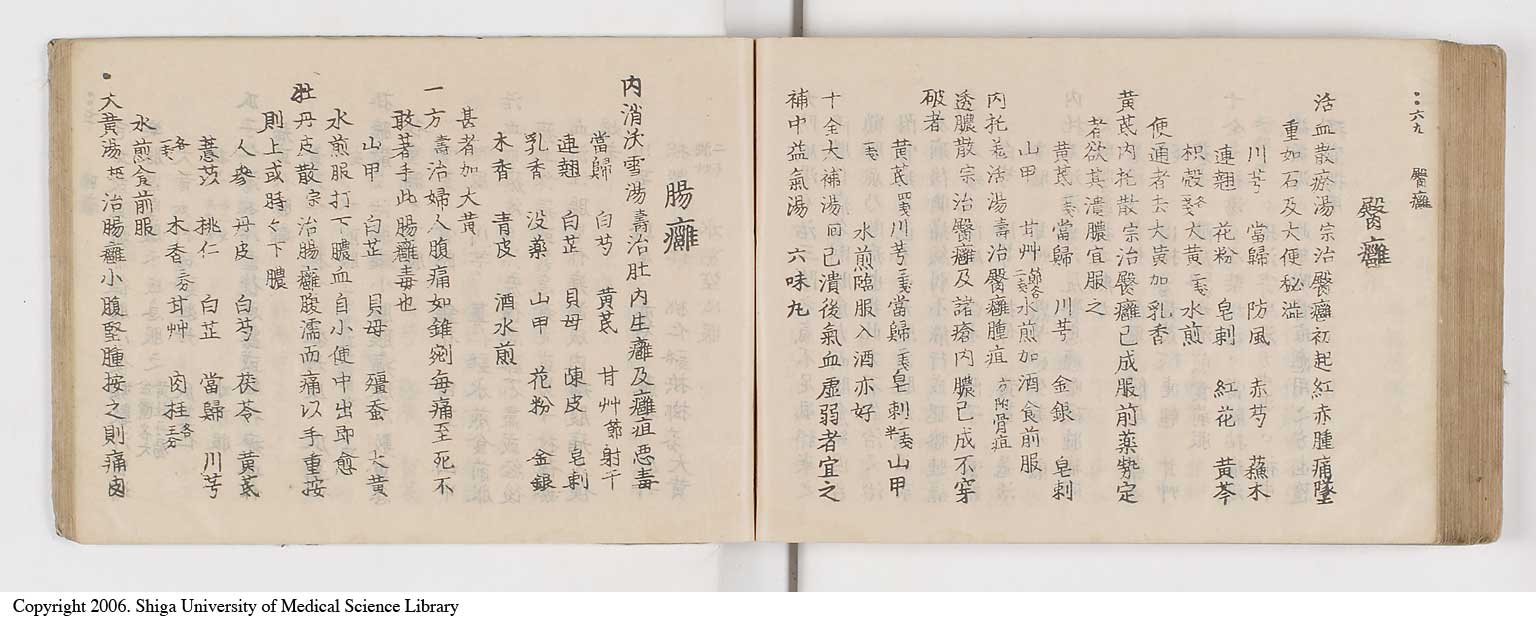 六九 臀癰
臀癰
活血散瘀湯宗治臀癰初起紅赤腫痛墜
重如石及大便秘澁
川芎 當歸 防風 赤芍 蘓木
連翹 花粉 皂刺 紅花 黄芩
枳殻 各一戔 大黄 二戔 水煎
便通者去大黄加乳香
黄芪内托散宗治臀癰已成服前薬勢定
者欲其潰膿宜服之
黄芪 當歸 川芎 金銀 皂刺
山甲 甘艸 水煎加酒食前服
内托羌活湯壽治臀癰腫疽 方附骨疽
透膿散宗治臀癰及諸瘡内膿已成不穿
破者
黄芪 四戔 川芎 三戔 當歸 二戔 皂刺 一戔半 山甲
一戔 水煎臨服入酒亦好
十全大補湯回已潰後氣血虚弱者宜之
補中益氣湯 六味丸
腸癰
内消沃雪湯壽治肚内生癰及癰疽悪毒
當歸 白芍 黄芪 甘艸 節 射干
連翹 白芷 貝母 陳皮 皂刺
乳香 没薬 山甲 花粉 金銀
木香 青皮 酒水煎
甚者加大黄
一方壽治婦人腹痛如錐剜毎痛至死不
敢著手此腸癰毒也
山甲 白芷 貝母 殭蚕 大黄
水煎服打下膿血自小便中出即愈
牡丹皮散宗治腸癰腹濡而痛以手重按
則止或時々下膿
人参 丹皮 白芍 茯苓 黄芪
薏苡 桃仁 白芷 當歸 川芎
各一戔 木香 三分 甘艸 肉桂 各三分
水煎食前服
大黄湯 治腸癰小腹堅腫按之則痛肉
Copyright 2006. Shiga University of Medical Science Library